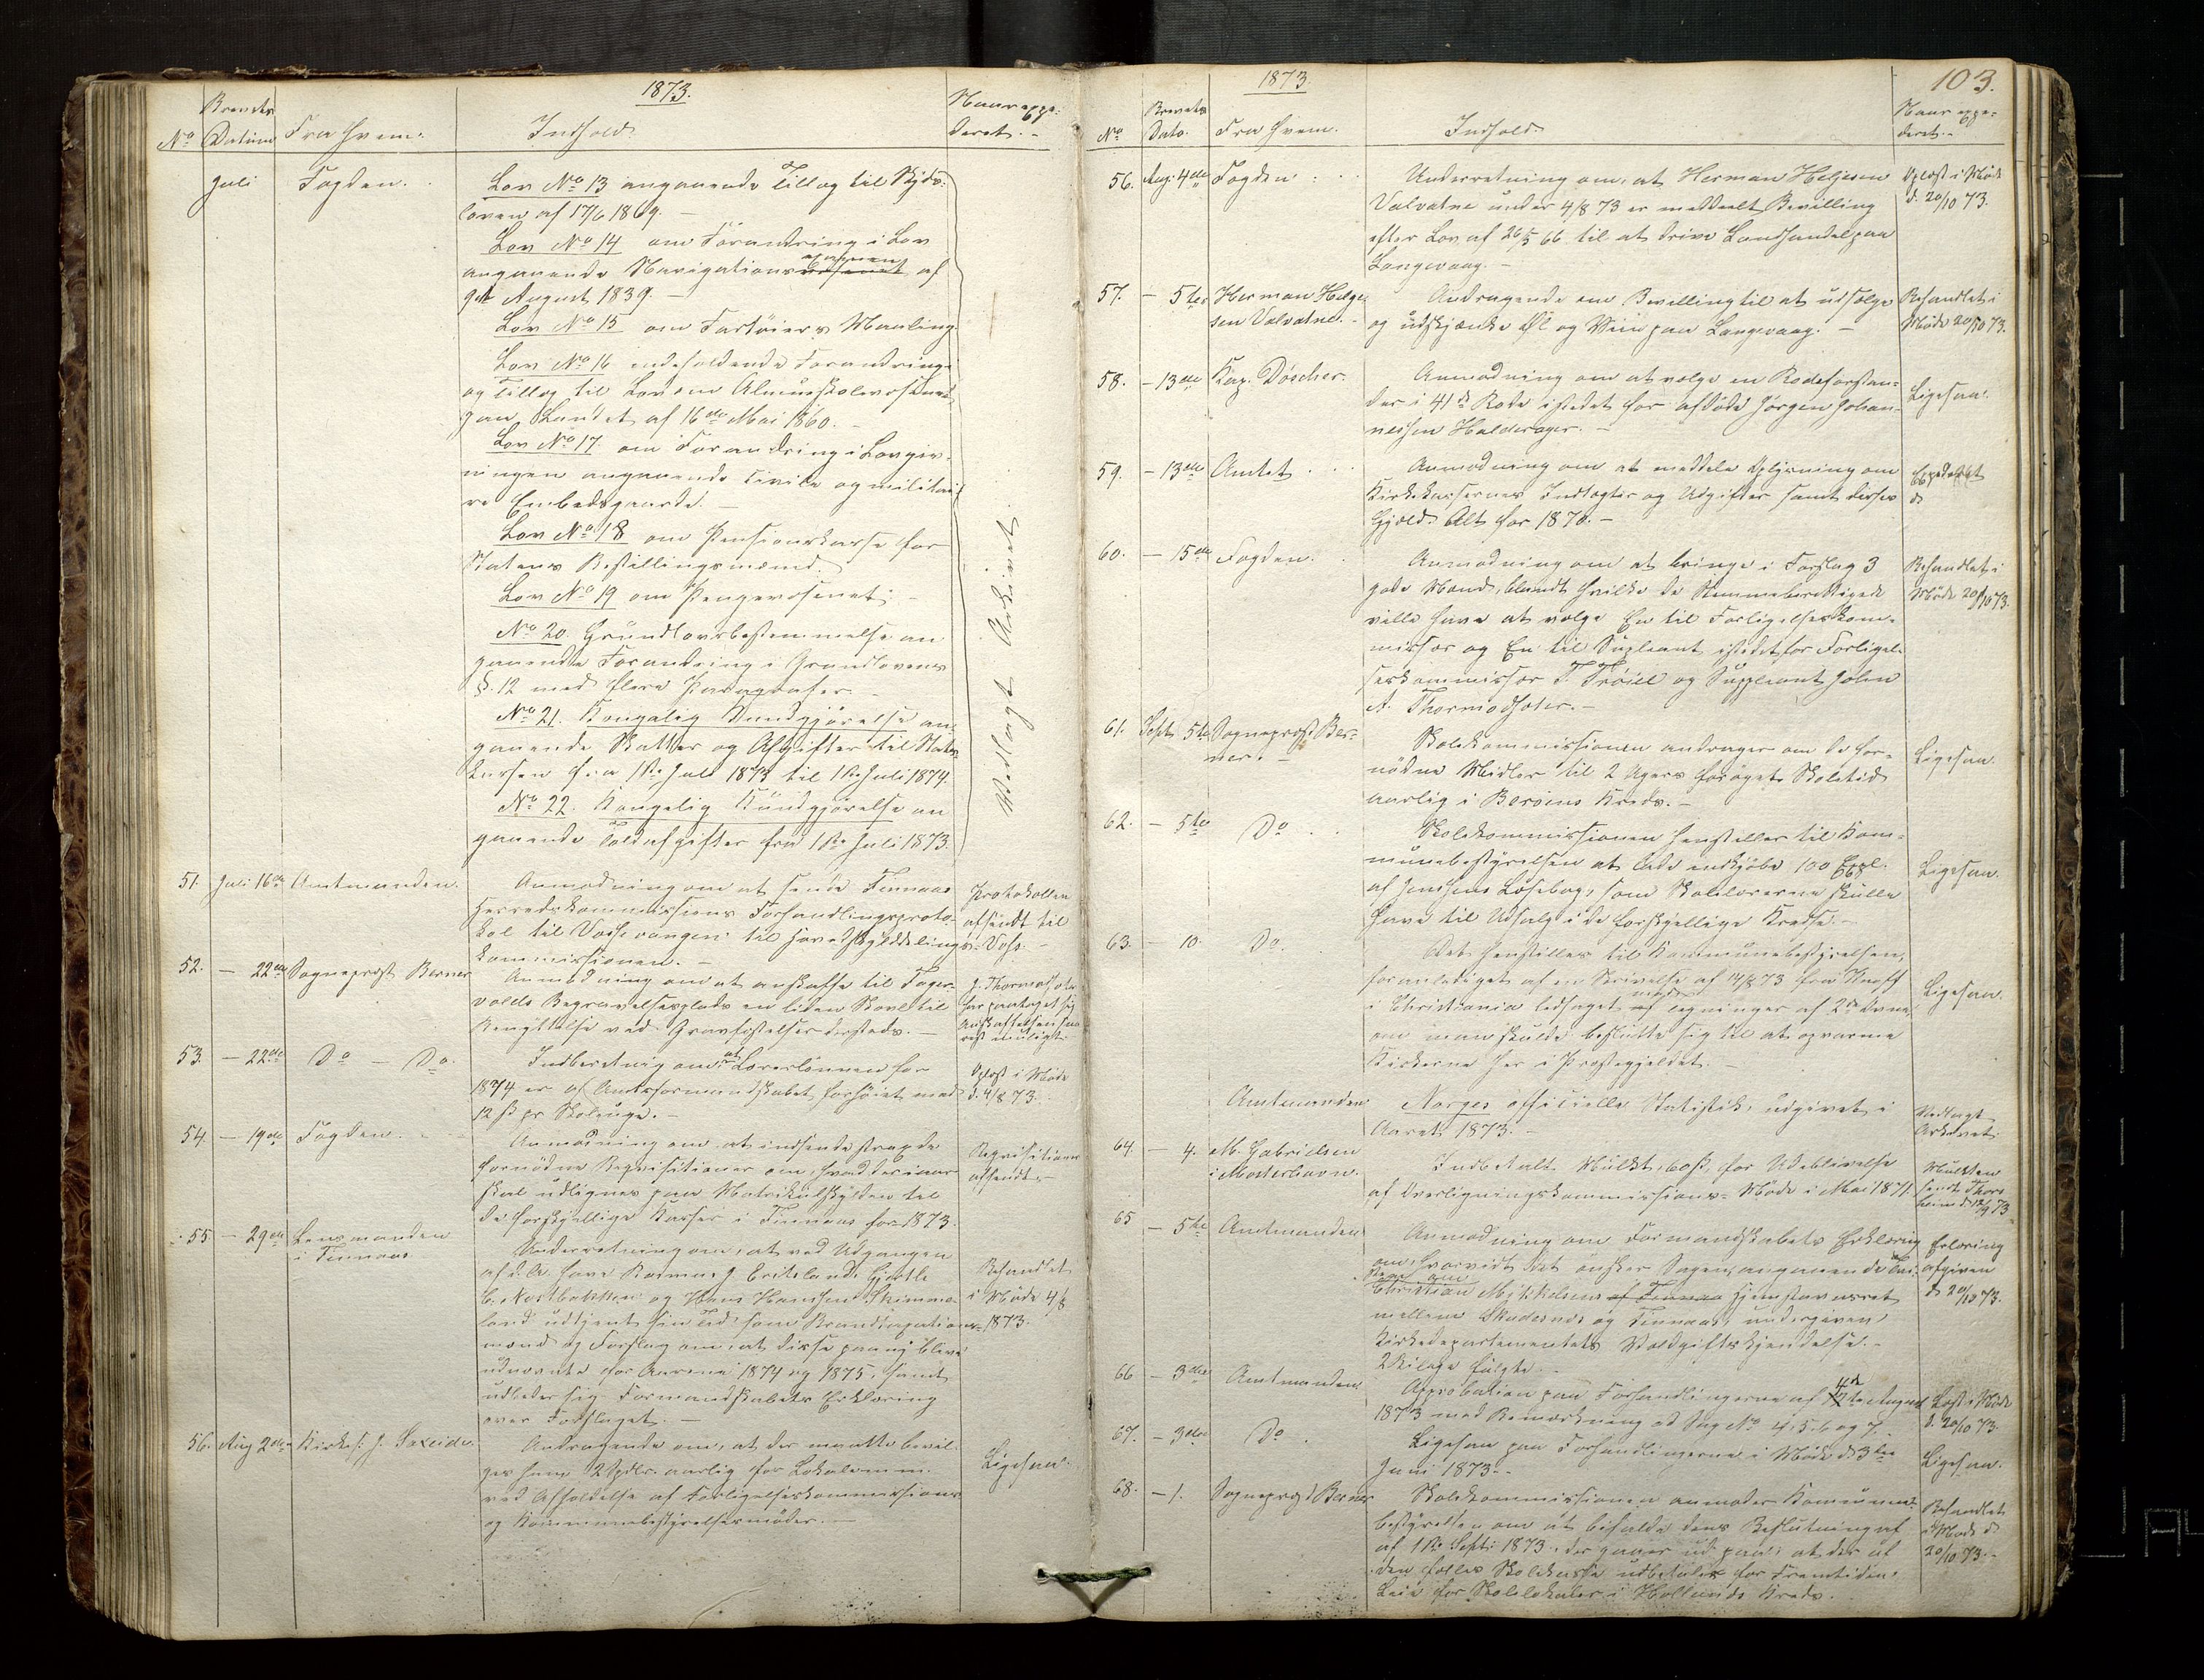 1873.
No
Brevets
Datum
Fra Hvem.
Indhold
Naar expe-
deret.-
Juli Fogden.
Lov No 13 angaaende Tillæg til Skyds-
loven af 17/6 1869. -
Lov No 14 om Forandring i Lov
angaaende Navigations af
9de August 1839. -
Lov No 15 om Fartøiers Maaling
Lov No 16 indeholdende Forandring
og Tillæg til Lov om Almueskolevæsenet
paa Landet af 16de Mai 1860. -
Lov No 17. om Forandring i Lovgiv-
ningen angaaende civile og militai-
re Embedsgaarde. -
Lov No 18 om Pensionskasse for
Statens Bestillingsmænd.
Lov No 19 om Pengevæsenet. -
No 20. Grundlovsbestemmelse an-
gaaende Forandring i Grundlovens
§. 12 med flere Paragrafer. -
No 21. Kongelig Kundgjørelse an-
gaaende Skatter og Afgifter til Stats-
kassen fra 1ste Juli 1873 til 1ste Juli 1874.
No 22. Kongelig Kundgjørelse an-
gaaende Toldafgifter fra 1ste Juli 1873.
Vedlagt Arkivet.
51. Juli 16de Amtmanden. Anmodning om at sende Finnaas
Herredskommissions Forhandlingsproto-
kol til Vossevangen til Hovedskylddelings-
kommissionen. -
Protokollen
afsendt til
Voss. -
52. - 22de Sogneprest Berner Anmodning om at anskaffe til Fager-
volds Begravelsesplads en liden Skovl til
Benyttelse ved Gravfæstelser dersteds. -
J. Thormodsæter
har paataget sig
Anskaffelsen saa
vidt muligt
53. - 22de Do - Do. Indberetning om at Lærerlønnen for
1874 er af Amtsformandskabet forhøiet med
12 ß pr Skoleuge. -
Oplæst i Møde
d. 4/8 73.
54. - 19de Fogden. Anmodning om at indsende
fornødne Reqvisitioner om, hvad der i aar
skal udlignes paa Matrikulskylden til
de forskjellige Kasser i Finnaas for 1873.
Reqvisitioner
afsendt. -
55 - 29de Lensmanden
i Finnaas
Underretning om, at ved Udgangen
af d. A. have Rasmus J. Eriksland, Gjertle
C. Nestbakken og Hans Hansen Skimme-
land udtjent sin Tid som Brandtaxations-
mænd og Forslag om, at disse paany bliver
udnævnte for Aarene 1874 og 1875, samt
udbeder sig Formandskabets Erklæring
over Forslaget. -
Behandlet
i Møde 4/8
1873.
56. Aug 2den Kirkes. J. Sæxeide. Andragende om, at der maatte bevil-
ges ham 2 Spdlr. aarlig for Lokale m. m.
ved Afholdelse af Forligelseskommissions
og Kommunebestyrelsesmøder. -
Ligesaa.
103.
1873.
No
Brevets
Dato.
Fra Hvem.
Indhold.
Naar expe-
deret. -
56. Aug. 4de Fogden. Underretning om, at Herman Helgesen
Valvatne under 4/8 73 er meddelt Bevilling
efter Lov af 26/5 66 til at drive Landhandel paa
Langevaag. -
Oplæst i Møde
d. 20/10 73.
57. - 5te Herman Helge-
sen Valvatne. -
Andragende om Bevilling til at udsælge
og udskjænke Øl og Viin paa Langevaag. -
Behandlet i
Møde 20/10 73.
58. - 13de Kap. Döscher. Anmodning om at vælge en Rodeforstan-
der i 41de Rode istedet for afdøde Jørgen Johan-
nessen Halderager. -
Ligesaa.
59. - 13de Amtet Anmodning om at meddele Oplysning om
Kirkekassernes Indtægter og Udgifter samt disses
Gjæld. Alt for 1870. -
Expederet
d
60. - 15de Fogden. Anmodning om at bringe i Forslag 3
gode Mænd, blandt hvilke de Stemmeberettigede
ville have at vælge En til Forligelseskom-
missær og En til Supleant istedet for Forligel-
seskommissær T. Trøite og Suppleant John
A. Thormodsæter. -
Behandlet i
Møde 20/10 73.
61. Septr 5te Sogneprest Ber-
ner. -
Skolekommissionen andrager om de for-
nødne Midler til 2 Ugers forøget Skoletid
aarlig i Børøens Kreds. -
Ligesaa.
62. - 5te Do Skolekommissionen henstiller til Kom-
munebestyrelsen at lade indkjøbe 100 Expl.
af Jensens Læsebog, som Skolelærerne skulle
have til Udsalg i de forskjellige Kredse. -
Ligesaa.
63. - 10. Do Det henstilles til Kommunebestyrelsen,
foranlediget af en Skrivelse af 14/8 73 fra
i Christiania ledsaget med Tegninger af 2de Ovne,
om man skulde beslutte sig til at opvarme
Kirkerne her i Præstegjeldet. -
Ligesaa.
Amtmanden Norges officielle Statistik, udgivet i
Aaret 1873. -
Vedlagt
Arkivet.
64. - 4. M. Gabrielsen
i Mosterhavn.
Indbetalt Mulkt, 60 ß, for Udeblivelse
af Overligningskommissions-Møde i Mai 1871.
Mulkten
sendt Thors-
heim d. 12/9 73
65 - 5te Amtmanden Anmodning om Formandskabets Erklæring
om, hvorvidt det ønsker Sagen angaaende
Christian Mikkelsens af Finnaas Hjemstavnsret
mellem Skudesnes og Finnaas, undergiven
Kirkedepartementets Voldgiftskjendelse. -
2 Bilage fulgte. -
Erklæring
afgiven
d 20/10 73.
66 - 3die Amtmanden Approbation paa Forhandlingerne af 4de August
1873 med Bemærkning ad Sag No 4, 5, 6 og 7. -
Læst i Møde
d. 20/10 73
67. - 3die Do Ligesaa paa Forhandlingerne i Møde d. 3die
Juni 1873. -
Ligesaa.
68. - 1. Sogneprest Berner Skolekommissionen anmoder Kommune-
bestyrelsen om at bifalde dens Beslutning af
af 1ste Septr 1873, der gaaer ud paa at der af
den fælles Skolekasse udbetales for Fremtiden
Leie for Skolelokaler i Hollunds Kreds. -
Behandlet
i Møde d
20/10 73. -